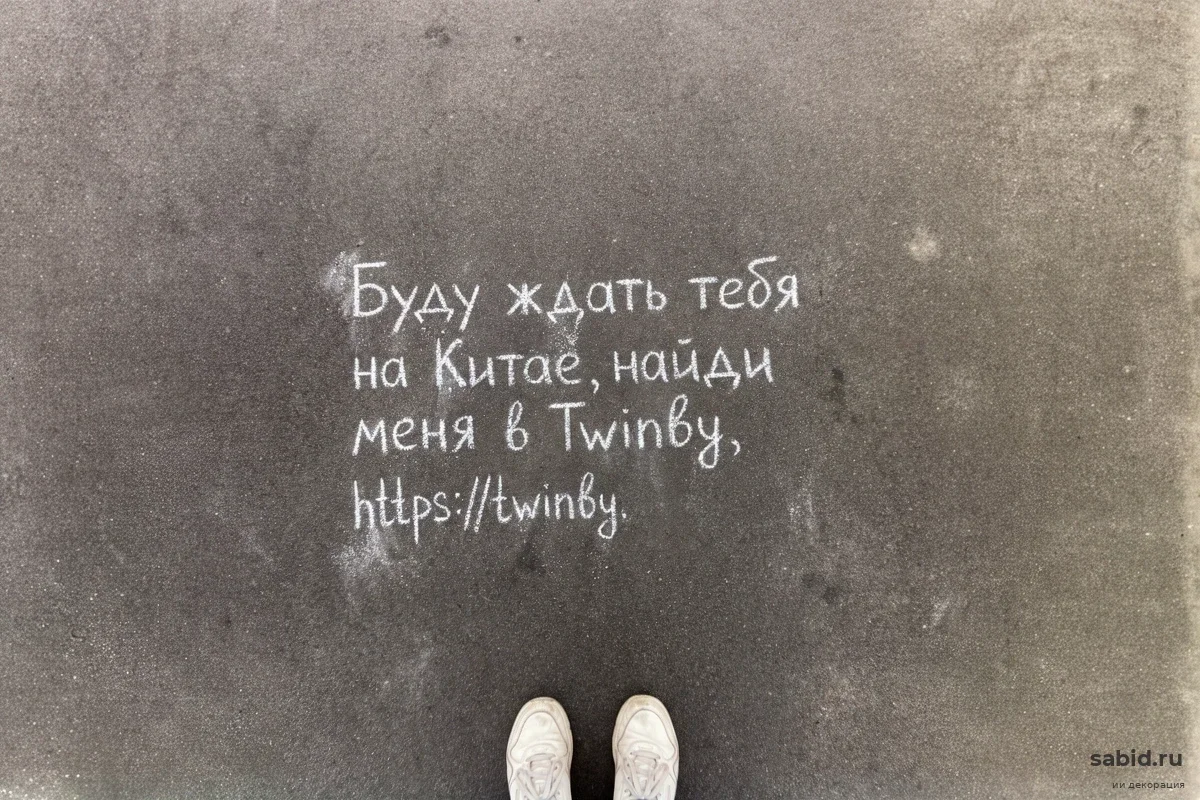 Буду ждать тебя
на Китае, найди
меня в Twinby,
https://twinby.
sabid.ru
ии декорация